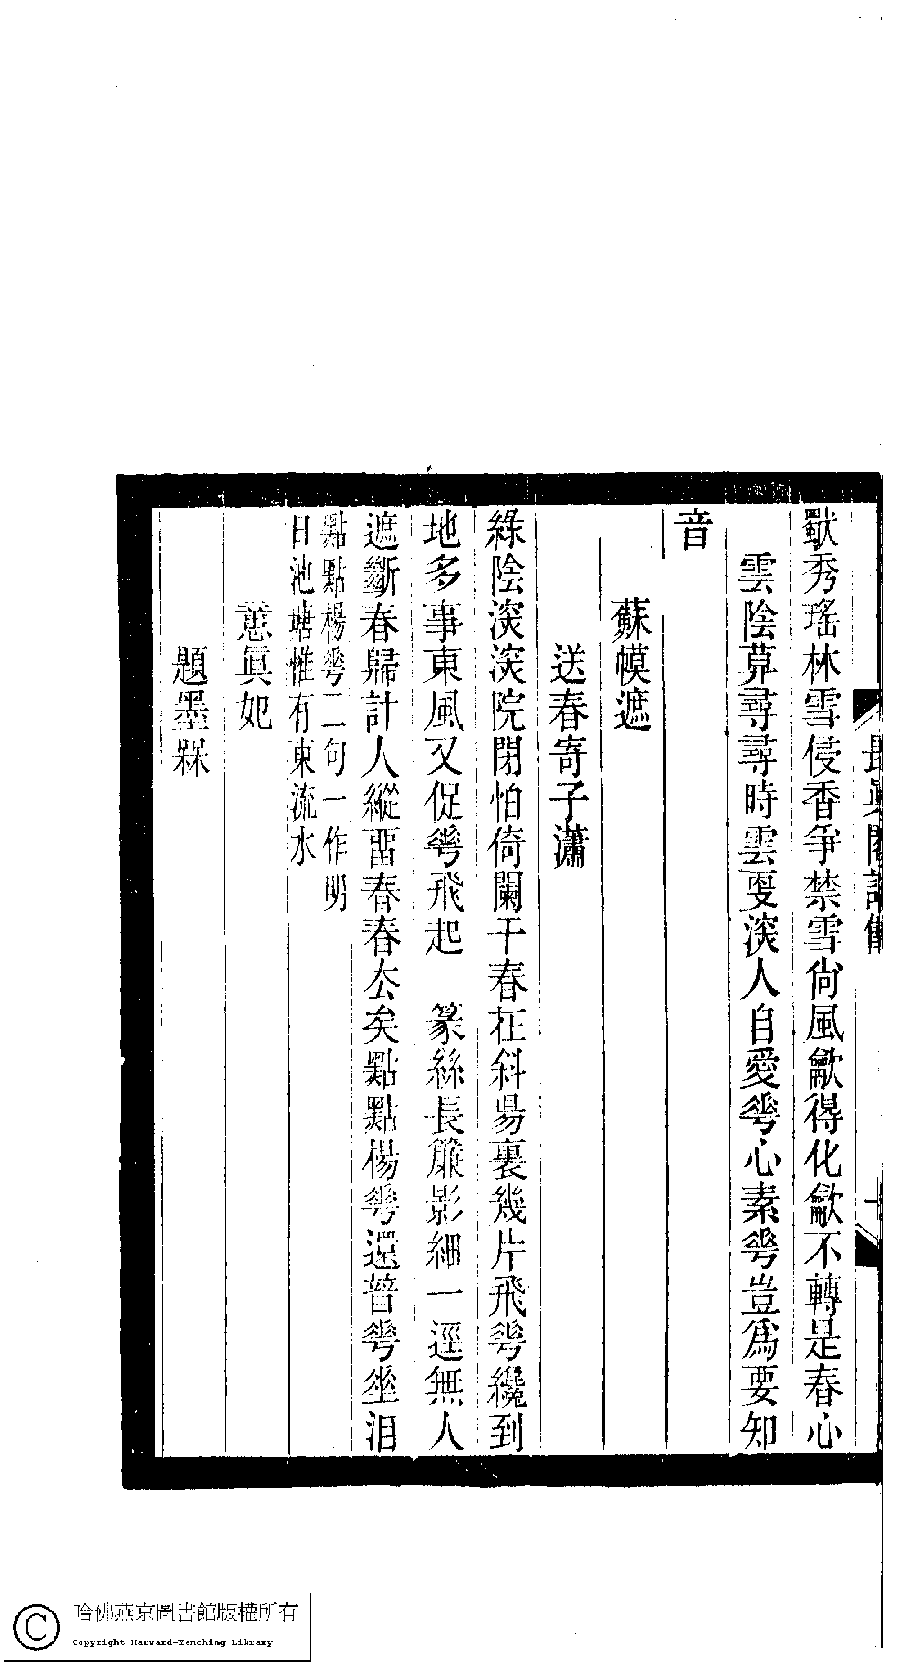 長眞閣詩餘 一
秀瑤林雪侵香爭禁雪尙風龡得化龡不轉是春心
雲陰莫尋尋時雲㪅湥人自愛蕐心素蕐豈爲要知
音
蘇幙遮
送春寄子瀟
綠陰湥湥院閉怕倚闌干春在斜昜裏幾片飛蕐纔到
地多事東風又促蕐飛起　篆絲長簾影細一逕無人
遮斷春歸計人縱畱春春厺矣點點楊蕐還替蕐垂泪
點點楊蕐二句一作明
日池塘惟有東流水
意眞妃
題墨槑
哈佛燕京圖書館版權所有
Copyright Harvard-Yenching Library